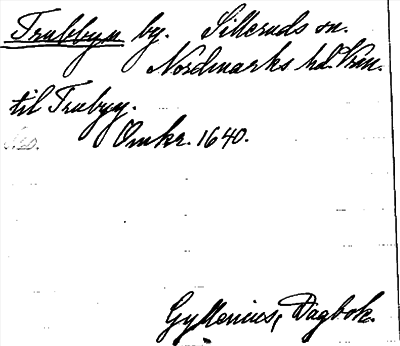 Trubbyn by. Silleruds sn.
Nordmarks hd. Vrm.
til Trubyn.
Omkr. 1640.
Gyllenius, Dagbok.